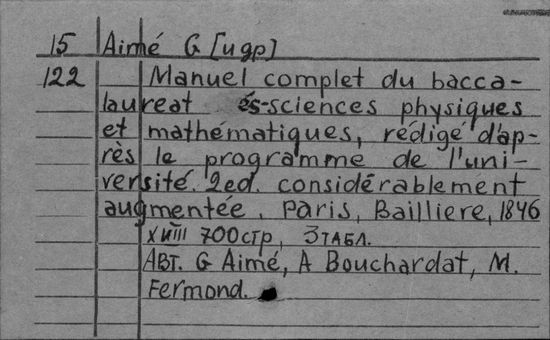 15 Aimé G [и др]
122 Manuel complet du bacca-
laureat és-sciences physiques
et mathématiques, rédigé d'ap-
rès le programme de l'uni-
versité. 2ed. considérablement
augmentée. Paris, Bailliere, 1846
XVIII 700стр, 3табл.
Авт. G Aimé, A Bouchardat, M.
Fermond.